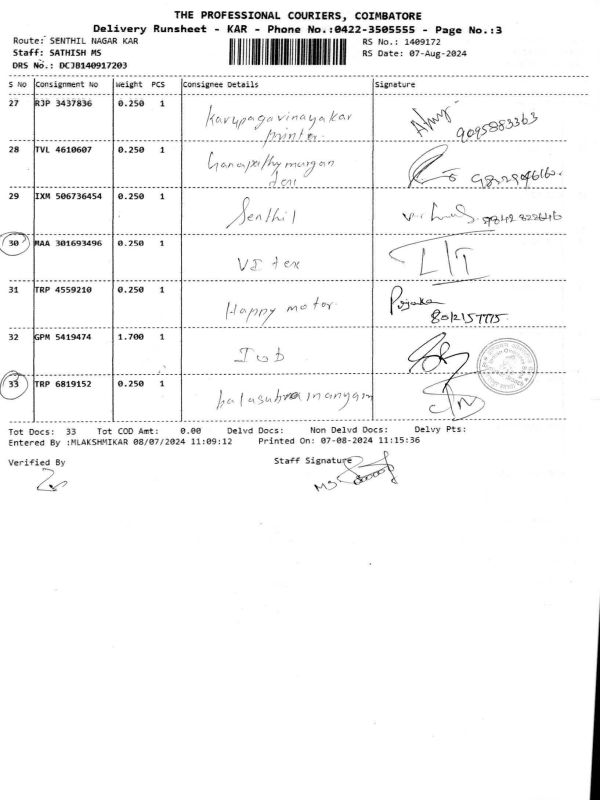 THE PROFESSIONAL COURIERS, COIMBATORE
Delivery Runsheet - KAR - Phone No.:0422-3505555 - Page No.:3
Route: SENTHIL NAGAR KAR RS No.: 1409172
Staff: SATHISH MS RS Date: 07-Aug-2024
DRS No.: DCJB140917203
S No Consignment No Weight PCS Consignee Details Signature
27 RJP 3437836 0.250 1
Karupagavinayakar
printer
9095883363
28 TVL 4610607 0.250 1
Ganapathymurgan
29 IXM 506736454 0.250 1
Senthil
9842822646
30 MAA 301693496 0.250 1
VI tex
31 TRP 4559210 0.250 1
Happy motor
32 GPM 5419474 1.700 1
IOB
33 TRP 6819152 0.250 1
balasubramanyam
Tot Docs: 33 Tot COD Amt: 0.00 Delvd Docs: Non Delvd Docs: Delvy Pts:
Entered By :MLAKSHMIKAR 08/07/2024 11:09:12 Printed On: 07-08-2024 11:15:36
Verified By Staff Signature
MS